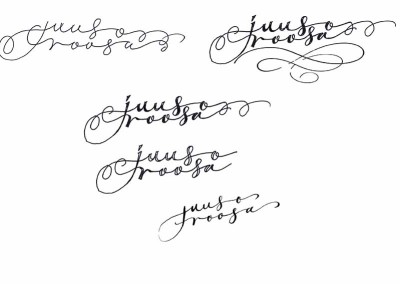 juuso
roosa
juuso
roosa
juuso
roosa
juuso
roosa
juuso
roosa